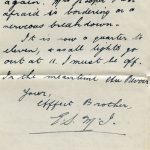 again. The people I am
afraid is bordering on a
nervous breakdown.
It is now a quarter to
eleven, & as all lights go
out at 11. I must be off.
In the meantime Au Revoir
Your,
Affect Brother,